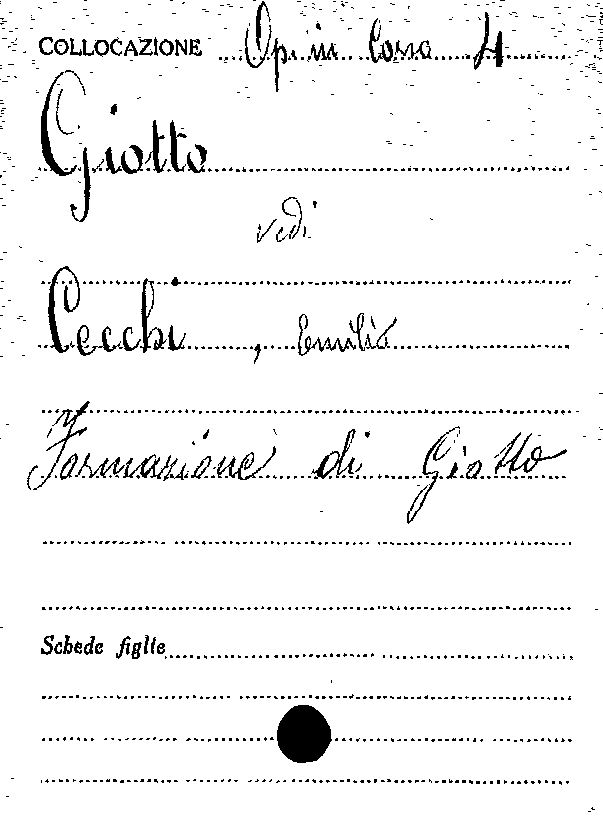 COLLOCAZIONE Op. in Corso 4
Giotto
vedi
Cecchi, Emilio
Formazione di Giotto
Schede figlie